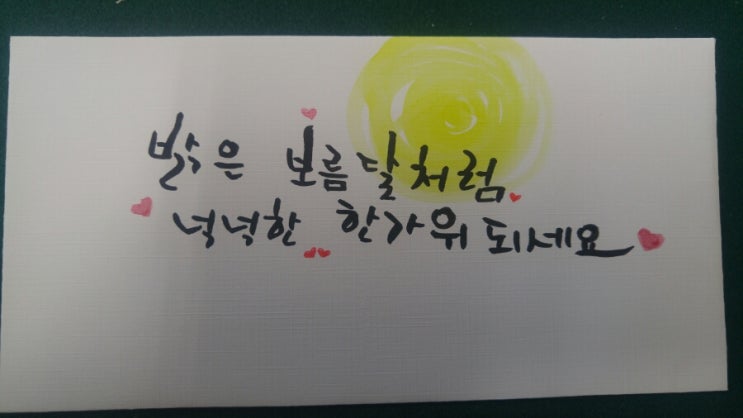 밝은 보름달처럼
넉넉한 한가위 되세요